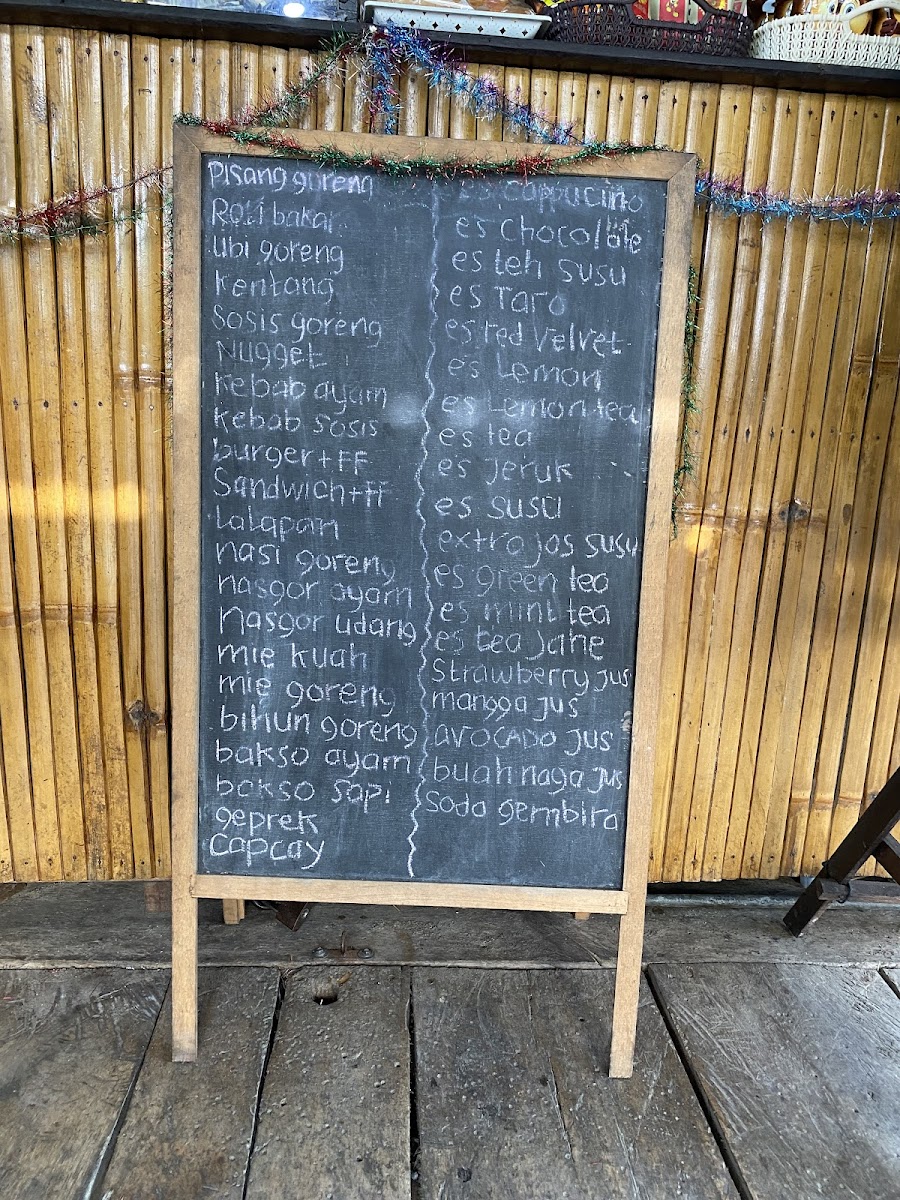 Pisang goreng
Roti bakar
Ubi goreng
Kentang
Sosis goreng
Nugget
Kebab ayam
Kebab sosis
burger+FF
Sandwich+ff
Lalapan
nasi goreng
nasgor ayam
nasgor udang
mie kuah
mie goreng
bihun goreng
bakso ayam
bakso sapi
geprek
Capcay
es cappucino
es chocolate
es teh susu
es Taro
es red Velvet
es Lemon
es Lemon tea
es tea
es Jeruk
es susu
extra jos susu
es green tea
es mint tea
es tea Jahe
Strawberry jus
mangga jus
AVOCADO jus
buah naga jus
Soda germbira